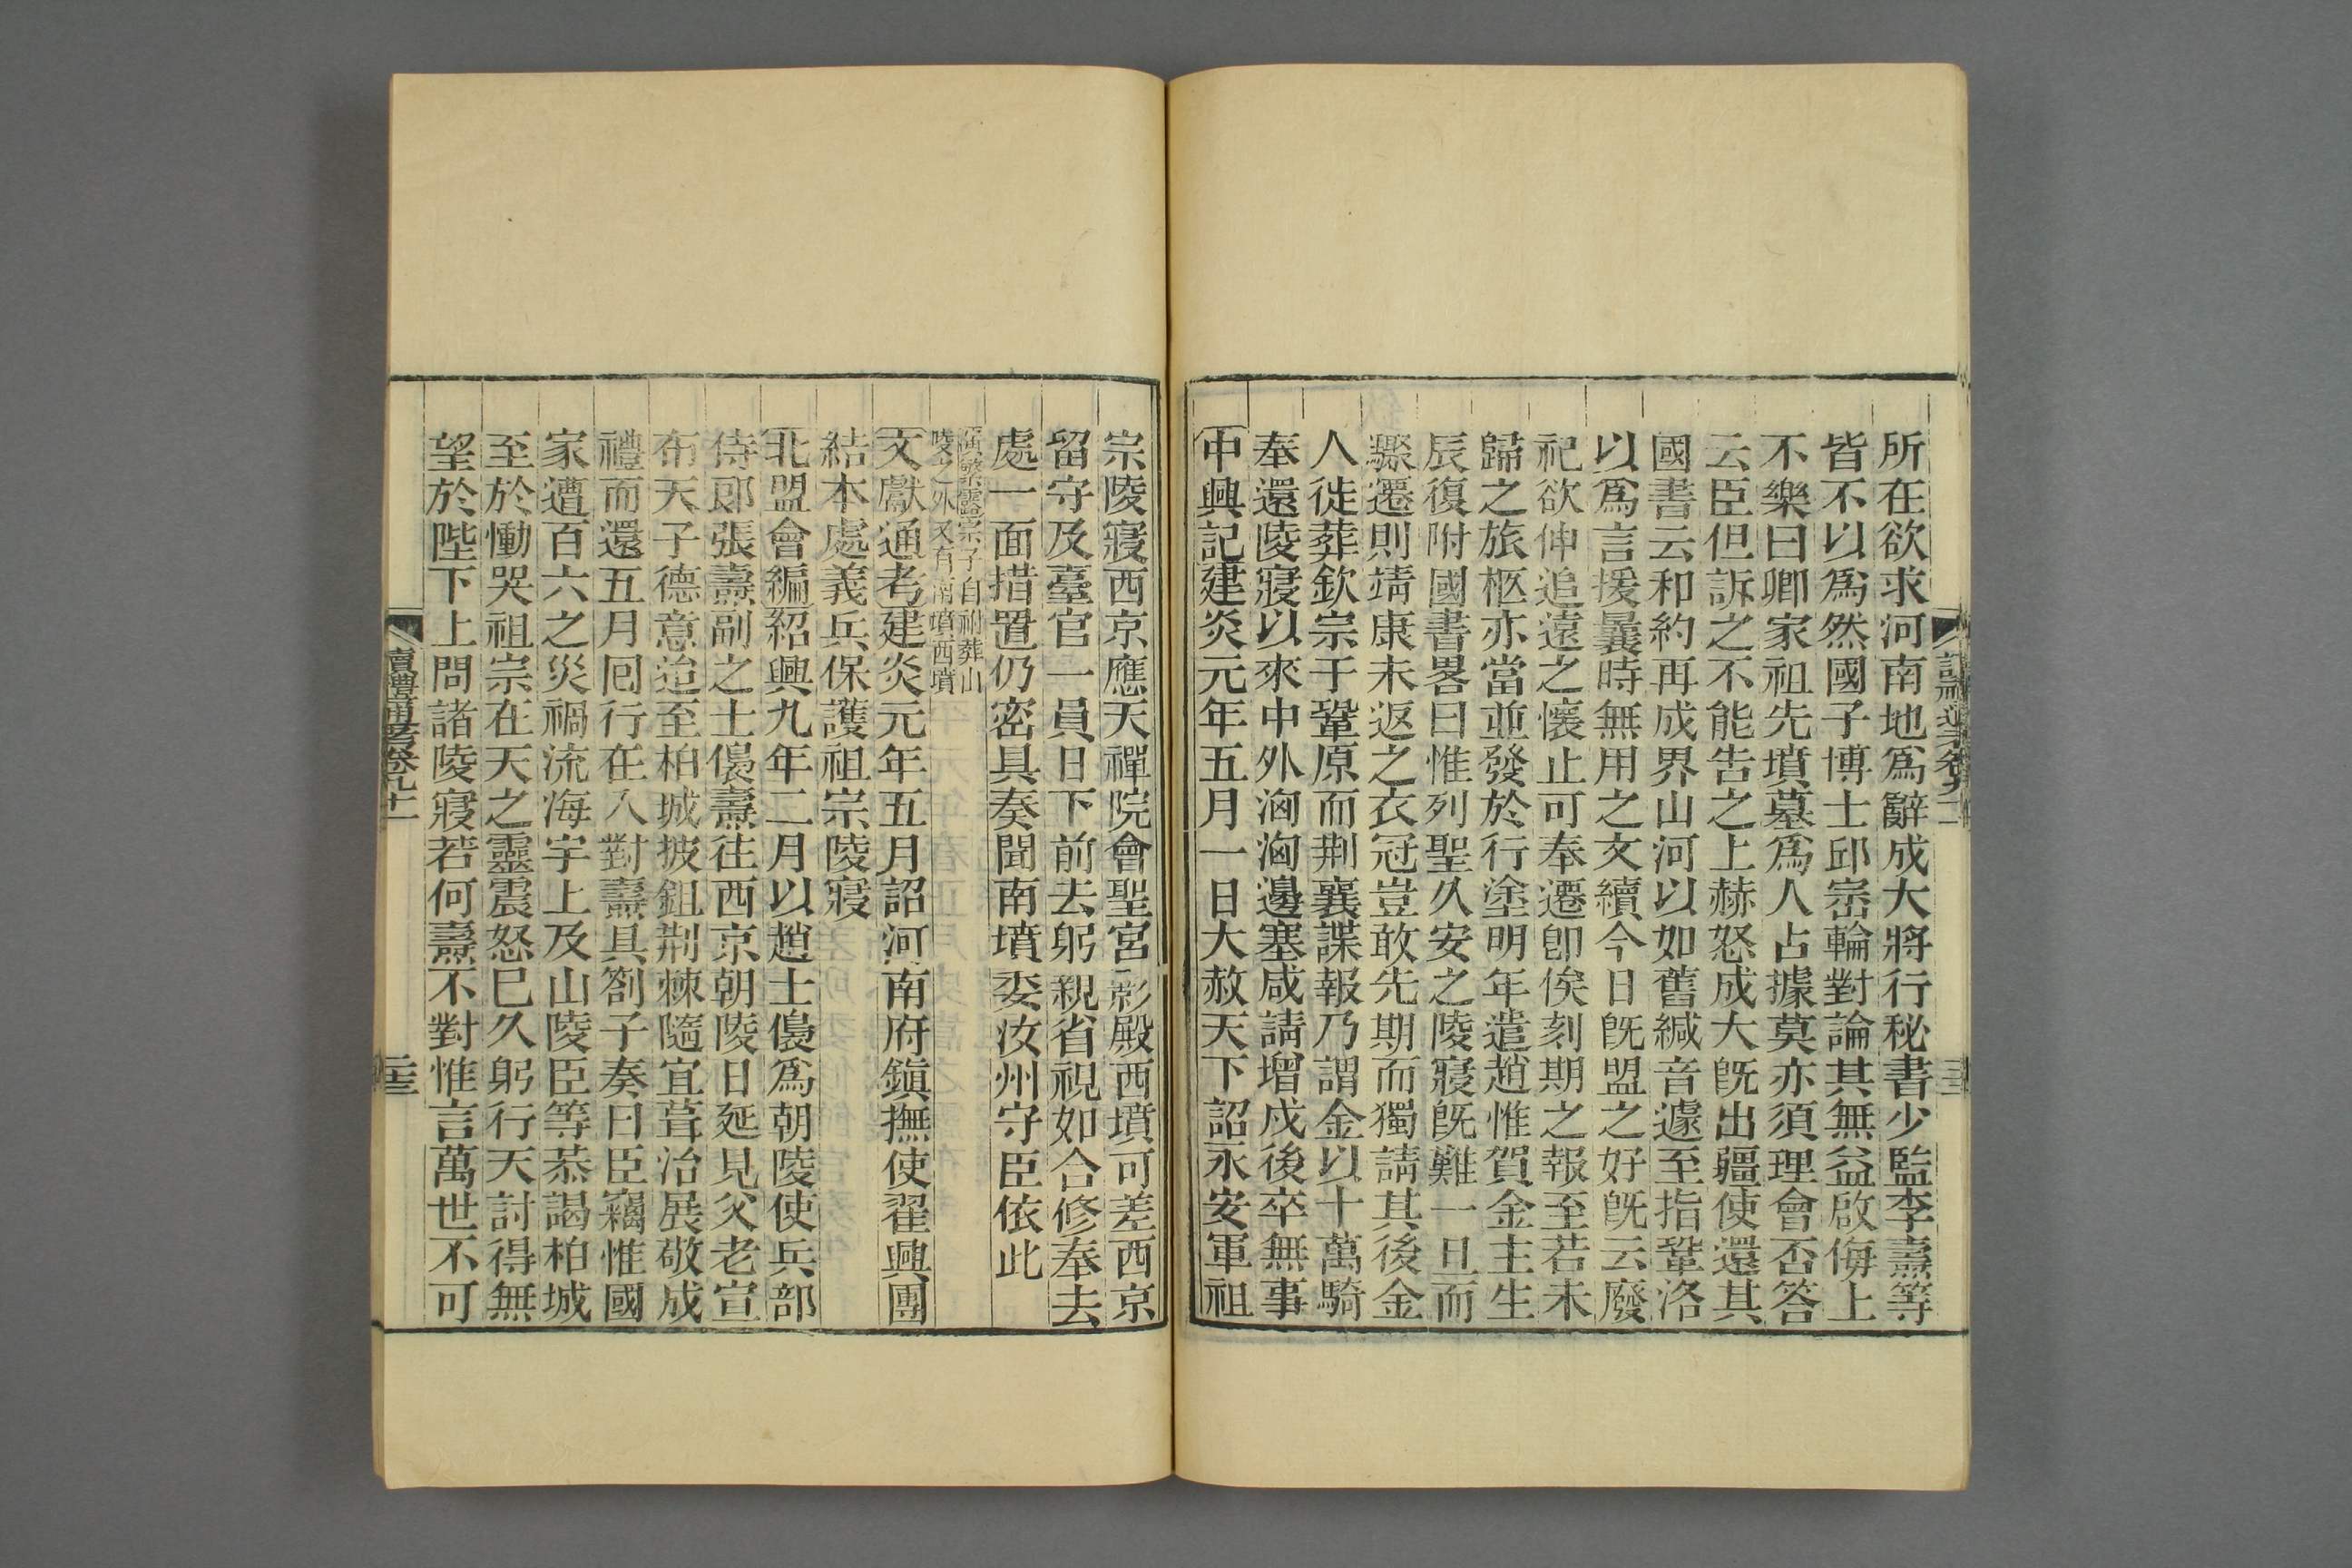 所在欲求河南地爲辭成大將行秘書少監李燾等
皆不以爲然國子博士邱崈輪對論其無益啟侮上
不樂曰卿家祖先墳墓爲人占據莫亦須理會否答
云臣但訴之不能告之上赫怒成大旣出疆使還其
國書云和約再成界山河以如舊緘音遽至指鞏洛
以爲言援曩時無用之文續今日旣盟之好旣云廢
祀欲伸追遠之懷止可奉遷卽俟刻期之報至若未
歸之旅柩亦當並發於行塗明年遣趙惟賀金主生
辰復附國書畧曰惟列聖久安之陵寢旣難一旦而
驟遷則靖康未返之衣冠豈敢先期而獨請其後金
人徙葬欽宗于鞏原而荆襄諜報乃謂金以十萬騎
奉還陵寢以來中外洶洶邊塞咸請增戍後卒無事
中興記建炎元年五月一日大赦天下詔永安軍祖
宗陵寢西京應天禪院會聖宮影殿西墳可差西京
留守及臺官一員日下前去躬親省視如合修奉去
處一面措置仍密具奏聞南墳委汝州守臣依此
演繁露宗子自祔葬山
陵之外又有南墳西墳
文獻通考建炎元年五月詔河南府鎭撫使翟興團
結本處義兵保護祖宗陵寢
北盟會編紹興九年二月以趙士㒟爲朝陵使兵部
侍郎張燾副之士㒟燾往西京朝陵日延見父老宣
布天子德意迨至柏城披鉏荆棘隨宜葺治展敬成
禮而還五月囘行在入對燾具劄子奏曰臣竊惟國
家遭百六之災禍流海宇上及山陵臣等恭謁柏城
至於慟哭祖宗在天之靈震怒巳久躬行天討得無
望於陛下上問諸陵寢若何燾不對惟言萬世不可
讀禮通考卷九十一